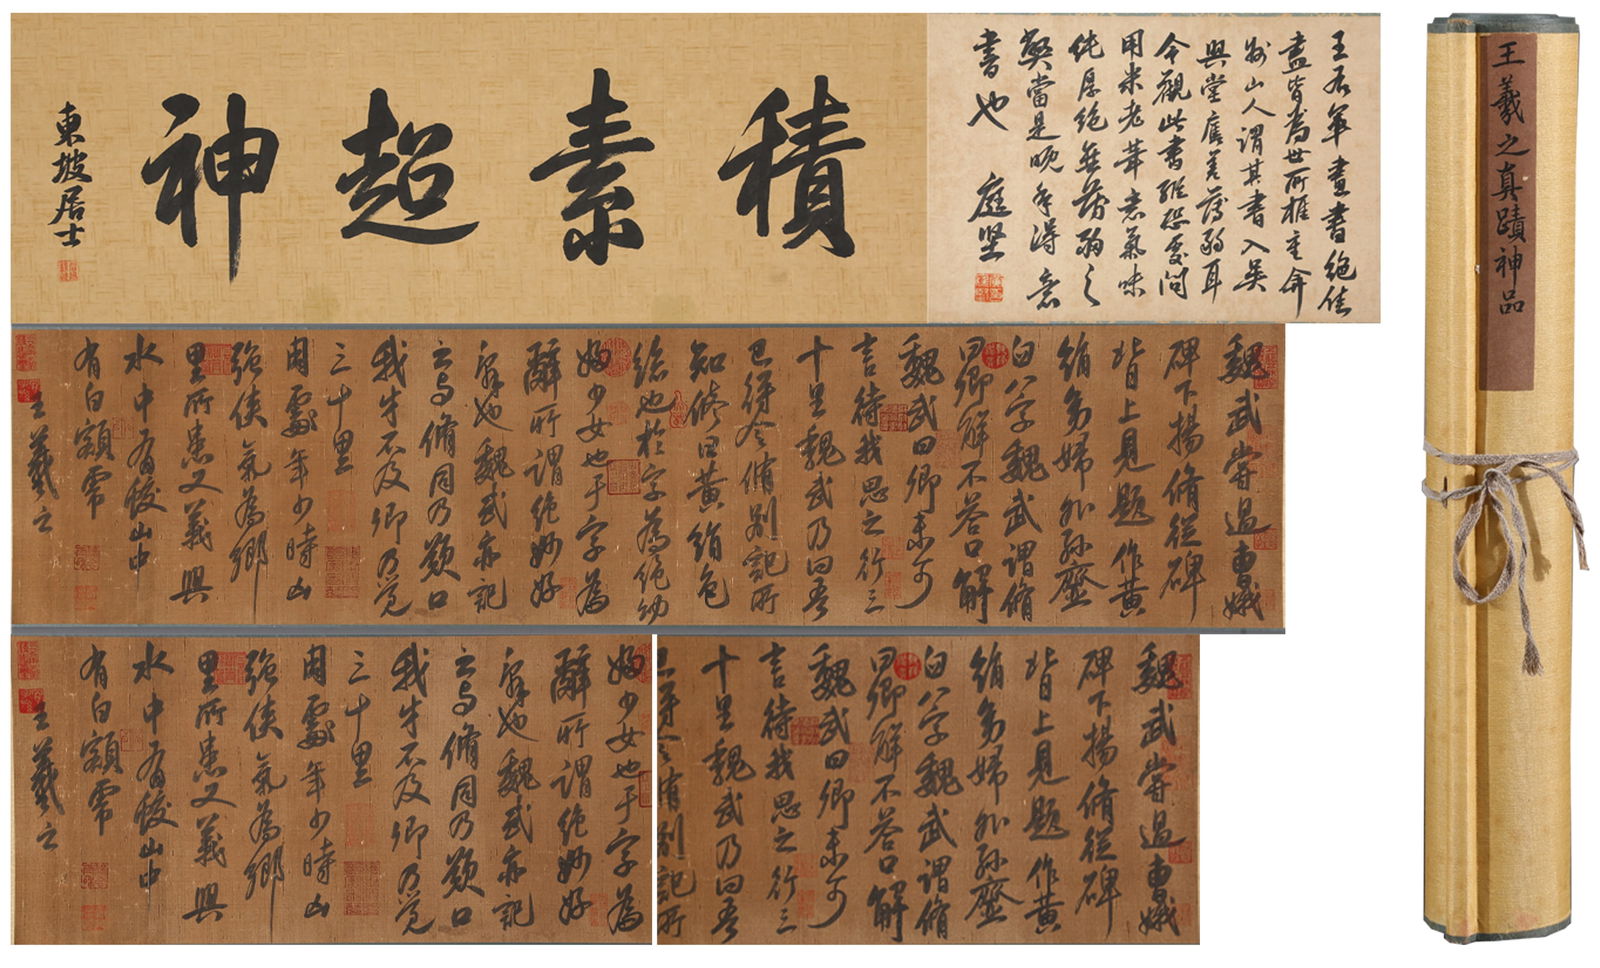 積素超神
東坡居士
王右軍畫書絕佳
盡皆為世所推重
山人謂其書入吳
興堂 薄弱耳
今觀此書雖恐更問
用米老筆意氣味
純厚絕無薄弱之
弊當是晚年得意
書也 庭堅
王羲之真蹟神品
魏武嘗過曹娥
碑下揚脩從碑
背上見題作黃
絹幼婦外孫齏
臼八字魏武謂脩
曰卿解不答曰解
魏武曰卿未可
言待我思之行三
十里魏武乃曰吾
已得令脩別記所
知脩曰黃絹色
絲也於字為絕幼
婦少女也于字為
辭所謂絕妙好
辭也魏武亦記
之與脩同乃歎曰
我才不及卿乃覺
三十里
周處年少時凶
強俠氣為鄉
里所患又義興
水中有蛟山中
有白額虎
王羲之
魏武嘗過曹娥
碑下揚脩從碑
背上見題作黃
絹幼婦外孫齏
臼八字魏武謂脩
曰卿解不答曰解
魏武曰卿未可
言待我思之行三
十里魏武乃曰吾
已得令脩別記所
婦少女也于字為
辭所謂絕妙好
辭也魏武亦記
之與脩同乃歎曰
我才不及卿乃覺
三十里
周處年少時凶
強俠氣為鄉
里所患又義興
水中有蛟山中
有白額虎
王羲之